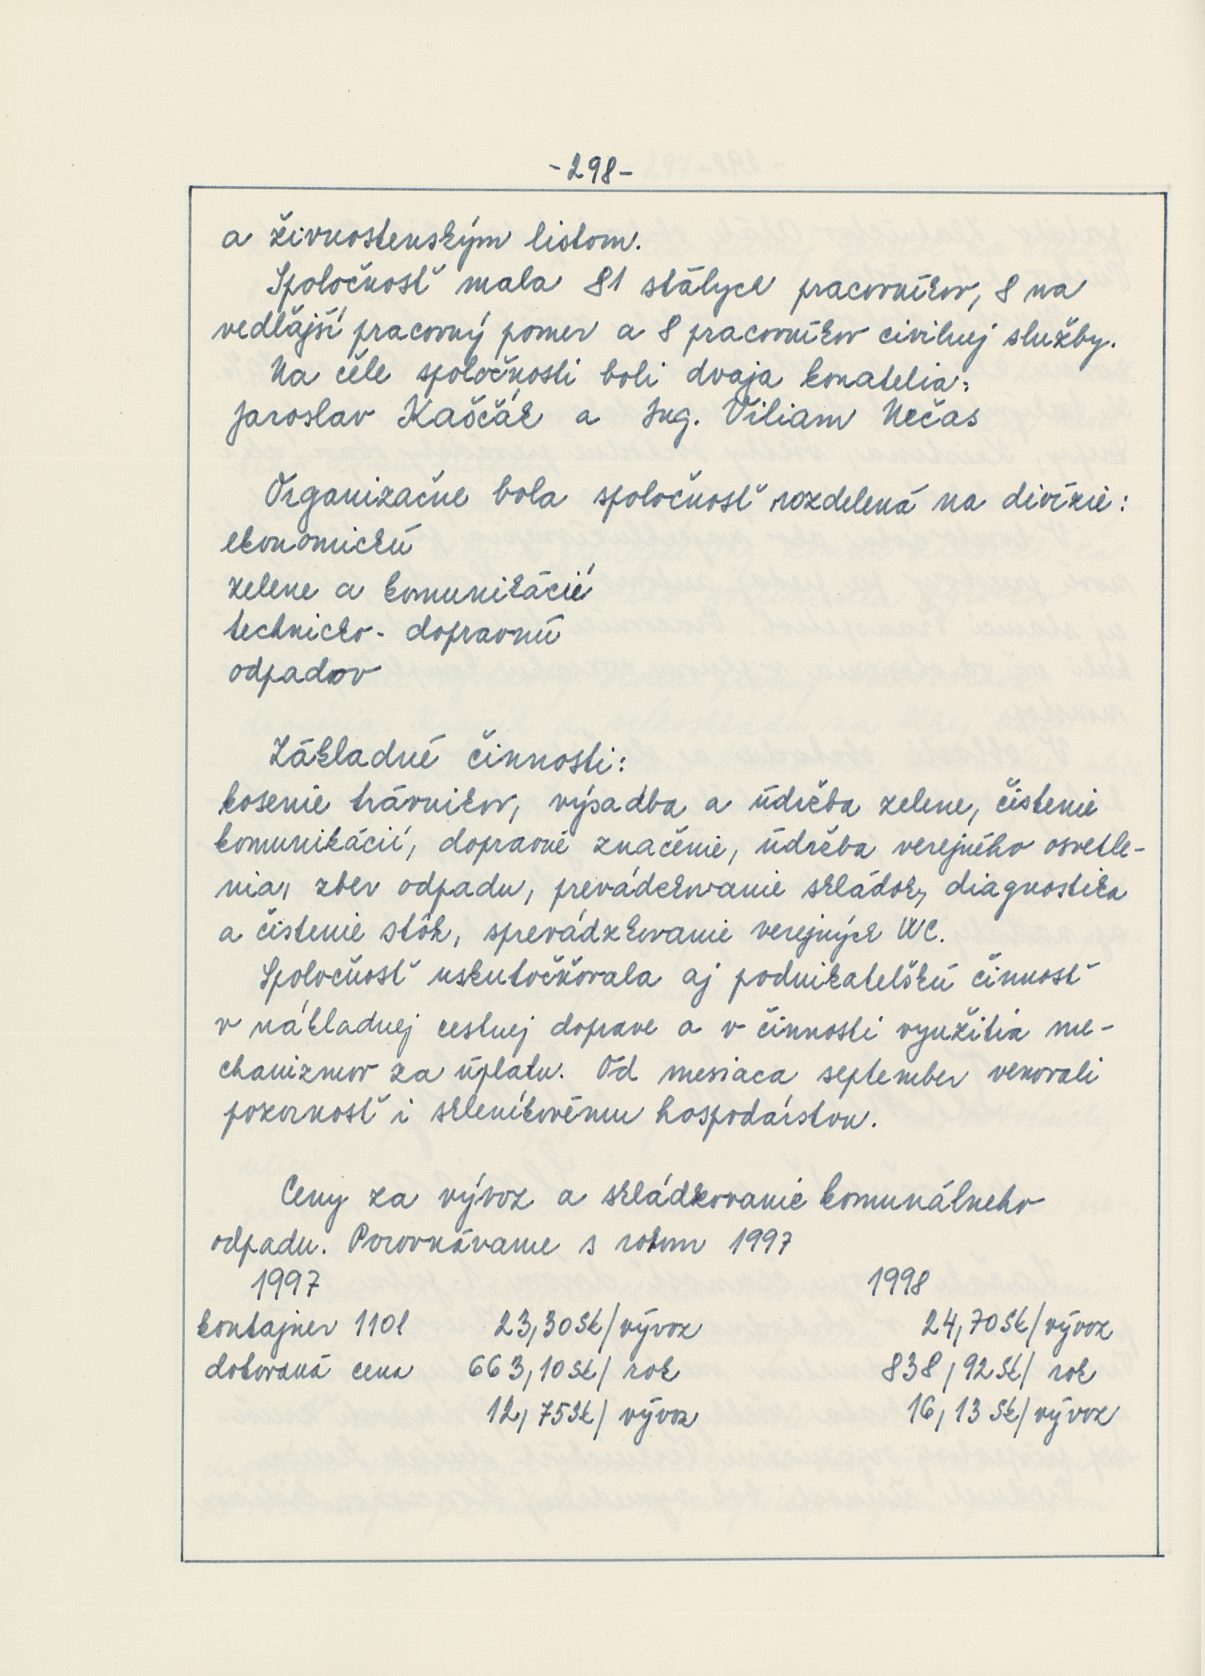 -298-
a živnostenským listom.
Spoločnosť mala 81 stálych pracovníkov, 8 na
vedľajší pracovný pomer a 8 pracovníkov civilnej služby.
Na čele spoločnosti boli dvaja konatelia:
Jaroslav Kaščák a Ing. Viliam Nečas
Organizačne bola spoločnosť rozdelená na divízie:
ekonomickú
zelene a komunikácií
technicko-dopravnú
odpadov
Základné činnosti:
kosenie trávnikov, výsadba a údržba zelene, čistenie
komunikácií, dopravné značenie, údržba verejného osvetle-
nia, zber odpadu, prevádzkovanie skládok, diagnostika
a čistenie stôk, sprevádzkovanie verejných WC.
Spoločnosť uskutočňovala aj podnikateľskú činnosť
v nákladnej cestnej doprave a v činnosti využitia me-
chanizmov za úplatu. Od mesiaca september venovali
pozornosť i skleníkovému hospodárstvu.
Ceny za vývoz a skládkovanie komunálneho
odpadu. Porovnávame s rokom 1997
1997 1998
kontajner 110l 23,30Sk/vývoz 24,70Sk/vývoz
dotovaná cena 663,10Sk/rok 838,92Sk/rok
12,75Sk/vývoz 16,13Sk/vývoz